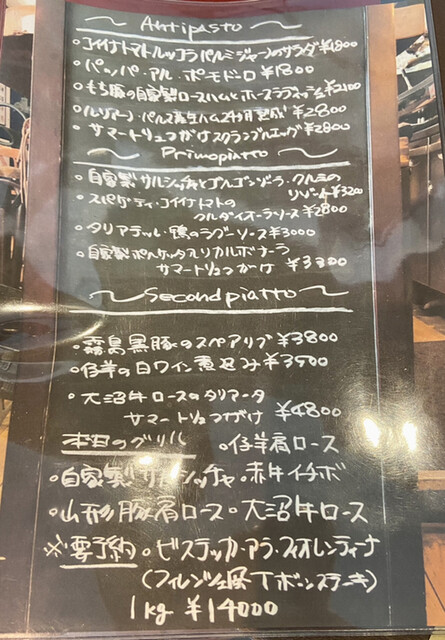 Antipasto
・コイイナトマト・ルッコラ・パルミジャーノのサラダ ¥1800
・パッパ・アル・ポモドーロ ¥1800
・もち豚の自家製ロースハムとホースラディッシュ ¥2100
・パルマ産生ハム24か月熟成 ¥2800
・サマートリュフがけスクランブルエッグ ¥2800
Primopiatto
・自家製サルシッチャとゴルゴンゾーラ・クルミの
リゾット ¥3200
・スパゲッティ・コイイナトマトの
クルダイオーラソース ¥2800
・タリアテッレ・鴨のラグーソース ¥3000
・自家製
カルボナーラ
サマートリュフがけ ¥3300
Secondpiatto
・霧島黒豚のスペアリブ ¥3800
・仔羊の白ワイン煮込み ¥3500
・大沼牛ロースのタリアータ
サマートリュフがけ ¥4800
本日のグリル ・仔羊肩ロース
・自家製サルシッチャ ・赤牛イチボ
・山形豚肩ロース ・大沼牛ロース
※要予約 ・ビステッカ・アラ・フィオレンティーナ
(フィレンツェ風Tボーンステーキ)
1kg ¥14000